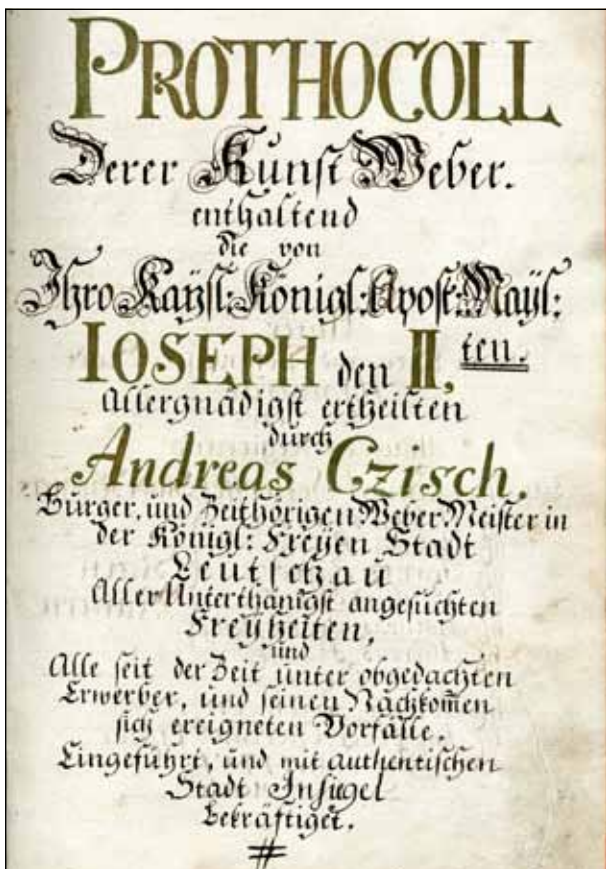 PROTHOCOLL
Derer Kunst Weber.
enthaltend
die von
Ihro Kaÿsl: Königl: Apost: Maÿl:
IOSEPH den II, ten.
Allergnädigst ertheilten
durch
Andreas Czisch.
Burger, und Zeithörigen Weber Meister in
der Königl: Freyen Stadt
Leutschau
Aller Unterthänigst angesuchten
Freyheiten,
und
Alle seit der Zeit unter obgedachten
Erwerber, und seinen Nachkom̄en
sich ereigneten Vorfälle.
Eingeführt, und mit authentischen
Stadt Insiegel
bekräftiget.
#